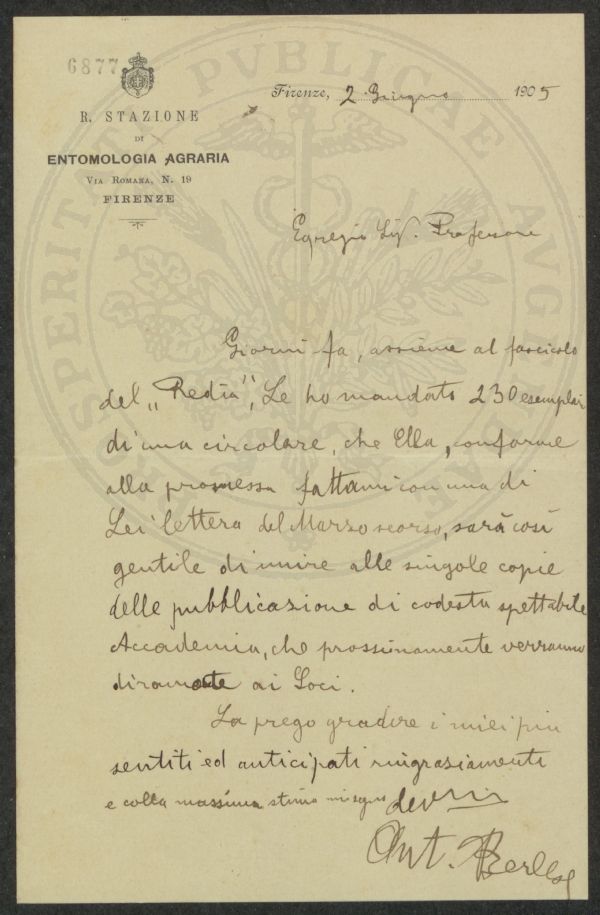 6877
R. STAZIONE
DI
ENTOMOLOGIA AGRARIA
VIA ROMANA, N. 19
FIRENZE
Firenze, 2 Giugno 1905
PVBLICAE
Egregio Sig. Professore
Giorni fa, assieme al fascicolo
del „Redia", Le ho mandato 230 esemplari
di una circolare, che Ella, conforme
alla promessa fattami con una di
Lei lettera del Marzo scorso, sarà così
gentile di unire alle singole copie
delle pubblicazione di codesta spettabile
Accademia, che prossimamente verranno
diramate ai Soci.
La prego gradire i miei più
sentiti ed anticipati ringraziamenti
e colla massima stima mi segno
Ant. Berlese